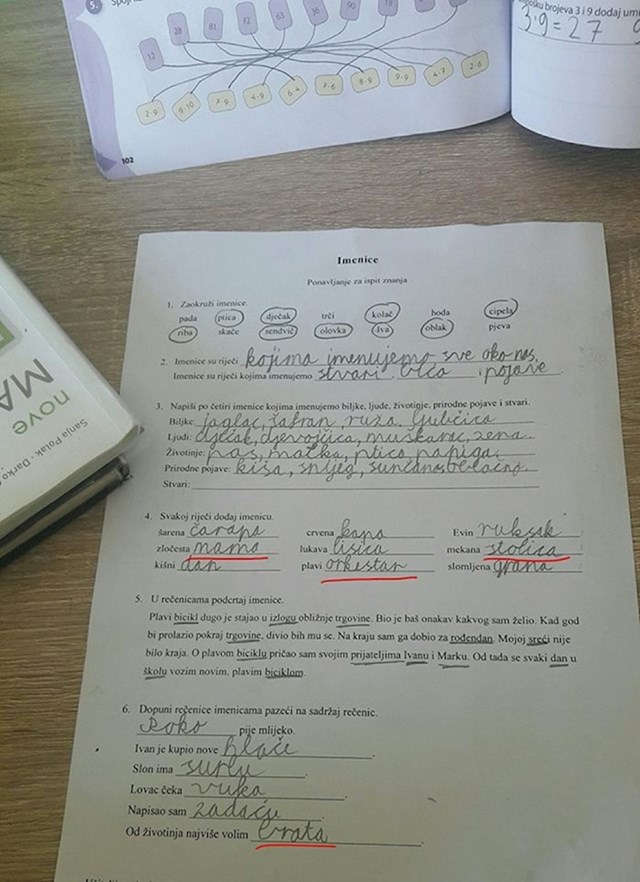 5.
28 81 72 63 36 90 18
12
2·9 9·10 7·9 4·9 6·4 7·6 8·9 9·9 4·7 2·6
102
brojeva 3 i 9 dodaj
3·9=27 9
Sanja Polak - Darko
nove
MA
Imenice
Ponavljanje za ispit znanja
1. Zaokruži imenice.
pada ptica dječak trči kolač hoda cipela
riba skače sendvič olovka Iva oblak pjeva
2. Imenice su riječi kojima imenujemo sve oko nas.
Imenice su riječi kojima imenujemo stvari, bića, pojave
3. Napiši po četiri imenice kojima imenujemo biljke, ljude, životinje, prirodne pojave i stvari.
Biljke: jaglac, šafran, ruža, ljubičica
Ljudi: dječak, djevojčica, muškarac, žena
Životinje: pas, mačka, ptica, papiga
Prirodne pojave: kiša, snijeg, sunčano, oblačno
Stvari:
4. Svakoj riječi dodaj imenicu.
šarena čarapa crvena kapa Evin ruksak
zločesta mama lukava lisica mekana stolica
kišni dan plavi orkestar slomljena grana
5. U rečenicama podcrtaj imenice.
Plavi bicikl dugo je stajao u izlogu obližnje trgovine. Bio je baš onakav kakvog sam želio. Kad god
bi prolazio pokraj trgovine, divio bih mu se. Na kraju sam ga dobio za rođendan. Mojoj sreći nije
bilo kraja. O plavom biciklu pričao sam svojim prijateljima Ivanu i Marku. Od tada se svaki dan u
školu vozim novim, plavim biciklom.
6. Dopuni rečenice imenicama pazeći na sadržaj rečenic.
Roko pije mlijeko.
Ivan je kupio nove hlače.
Slon ima surlu.
Lovac čeka vuka.
Napisao sam zadaću.
Od životinja najviše volim brata.